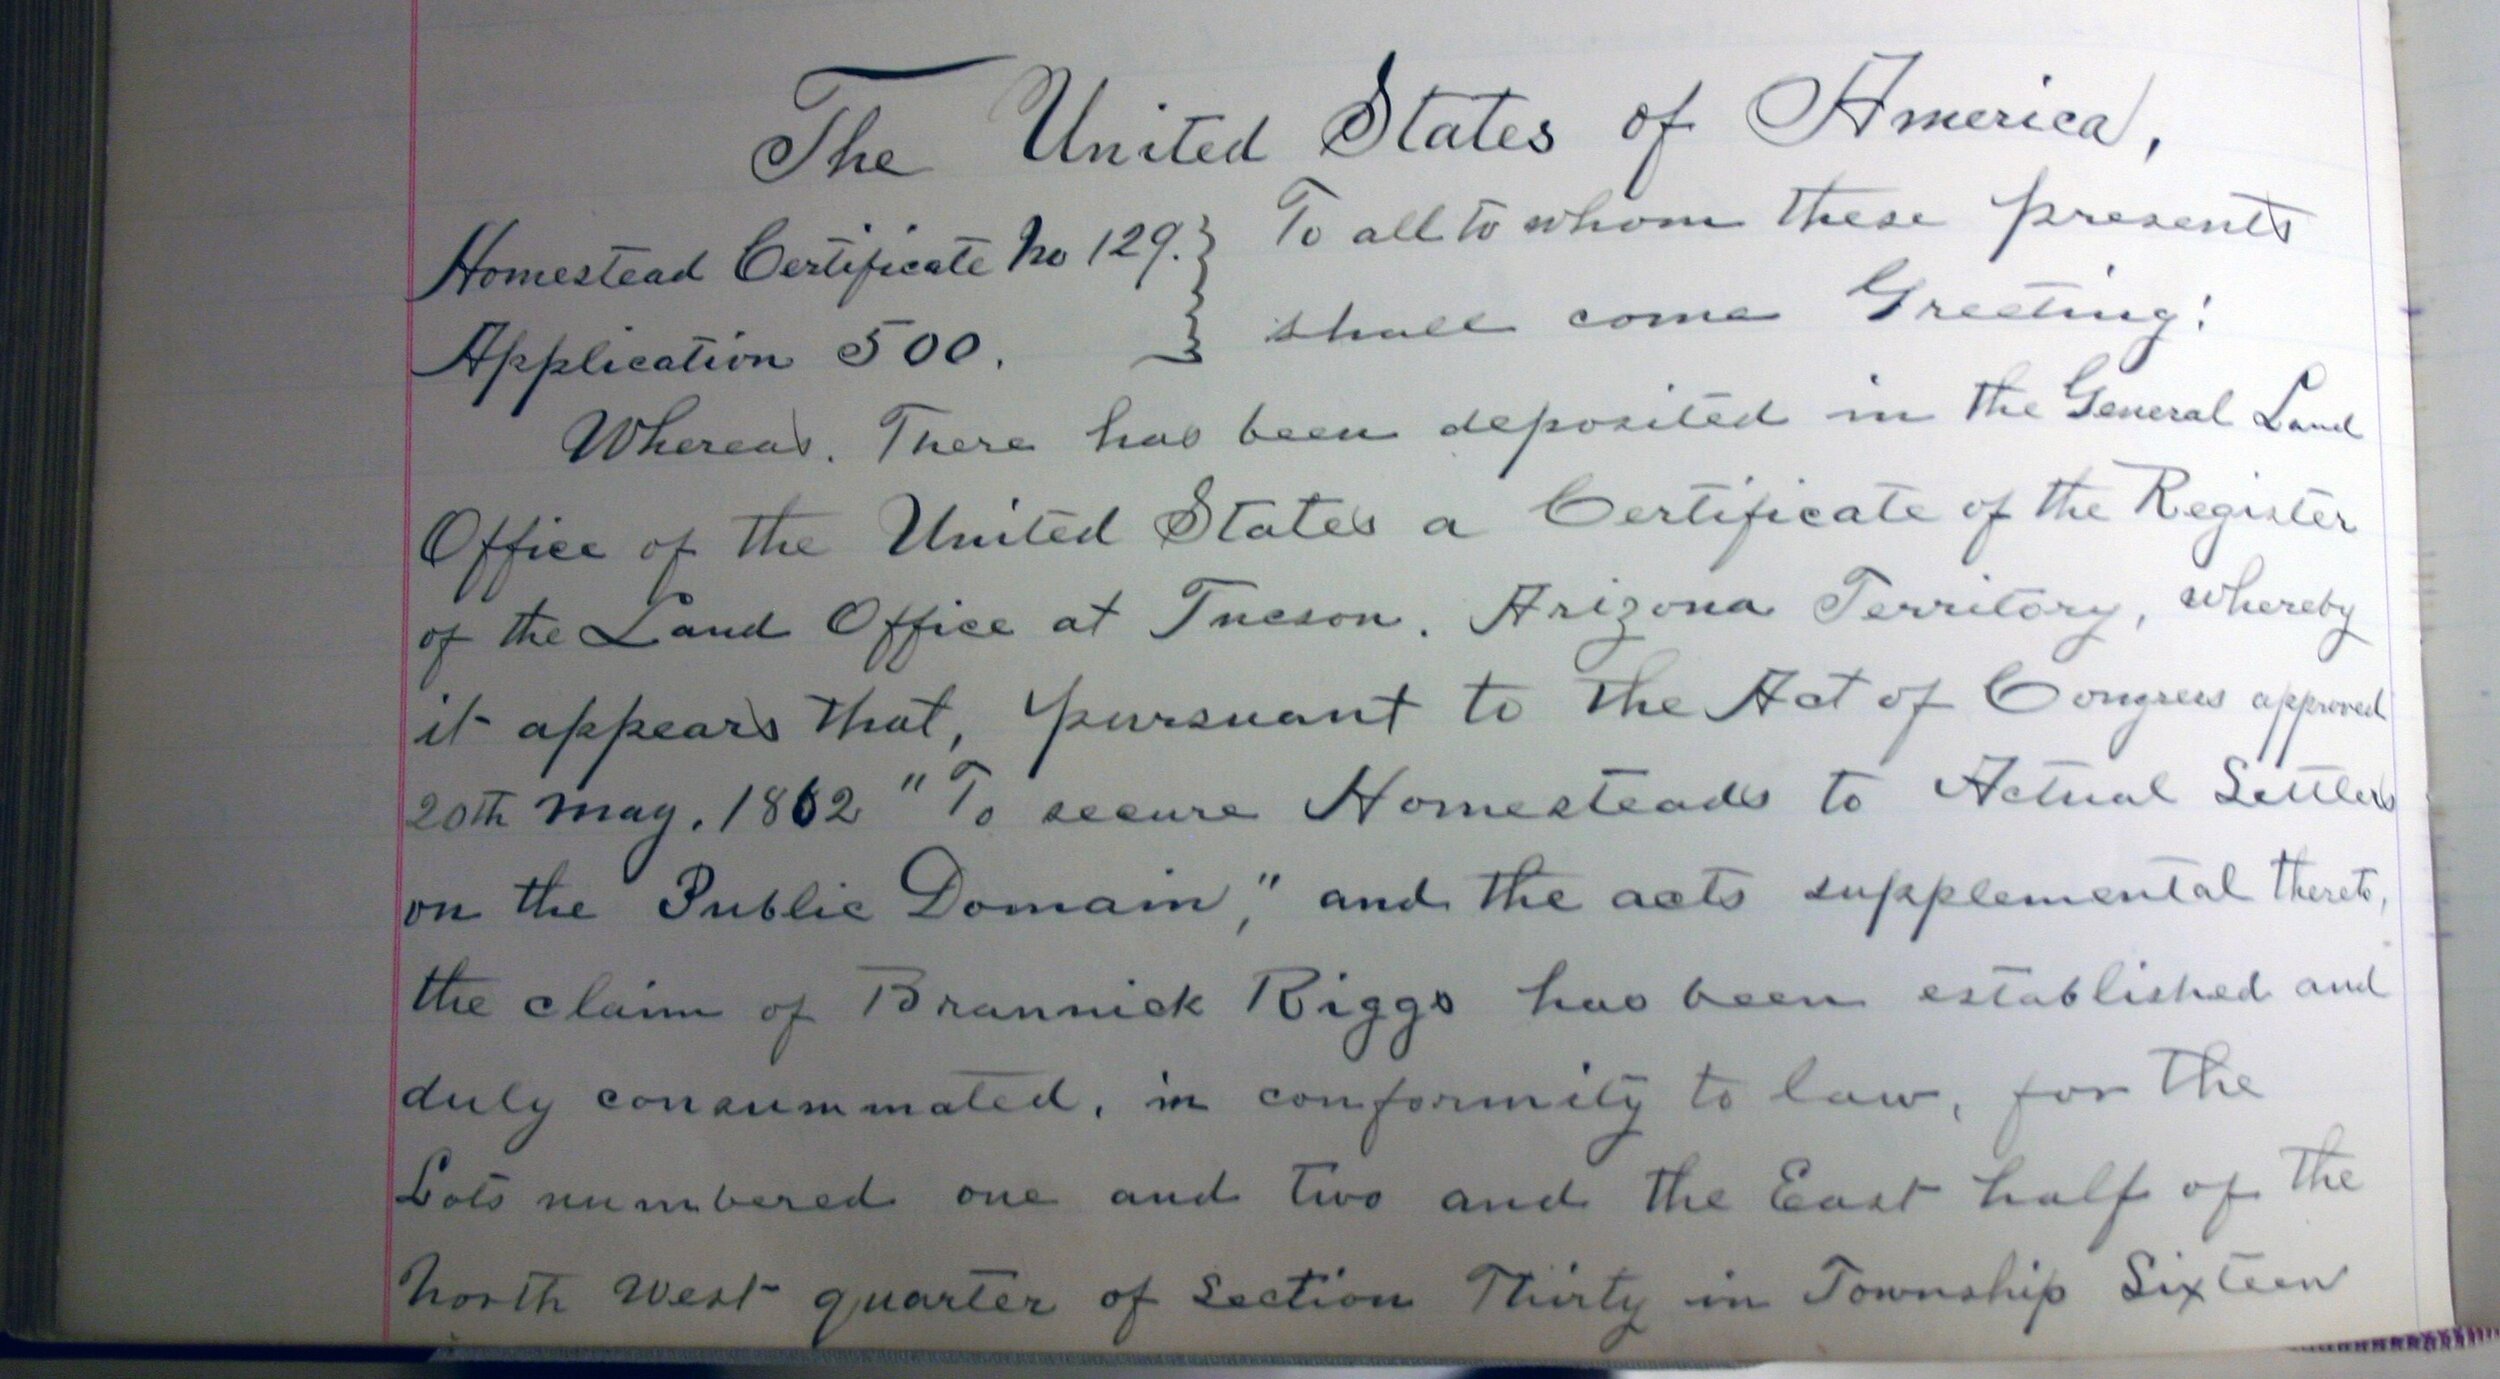 The United States of America,
Homestead Certificate No 129. } To all to whom these presents
Application 500. } shall come Greeting:
Whereas. There has been deposited in the General Land
Office of the United States a Certificate of the Register
of the Land Office at Tucson. Arizona Territory, whereby
it appears that, pursuant to the Act of Congress approved
20th May. 1862 "To secure Homesteads to Actual Settlers
on the Public Domain," and the acts supplemental thereto,
the claim of Brannick Riggs has been established and
duly consummated, in conformity to law, for the
Lots numbered one and two and the East half of the
North West quarter of Section Thirty in Township Sixteen